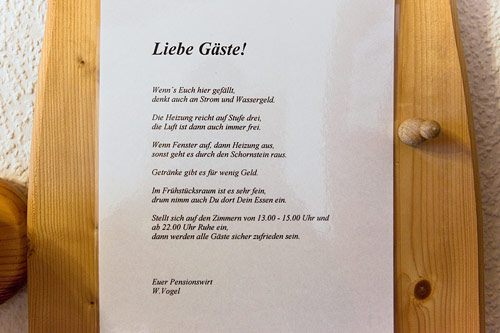 Liebe Gäste!
Wenn`s Euch hier gefällt,
denkt auch an Strom und Wassergeld.
Die Heizung reicht auf Stufe drei,
die Luft ist dann auch immer frei.
Wenn Fenster auf, dann Heizung aus,
sonst geht es durch den Schornstein raus.
Getränke gibt es für wenig Geld.
Im Frühstücksraum ist es sehr fein,
drum nimm auch Du dort Dein Essen ein.
Stellt sich auf den Zimmern von 13.00 - 15.00 Uhr und
ab 22.00 Uhr Ruhe ein,
dann werden alle Gäste sicher zufrieden sein.
Euer Pensionswirt
W.Vogel